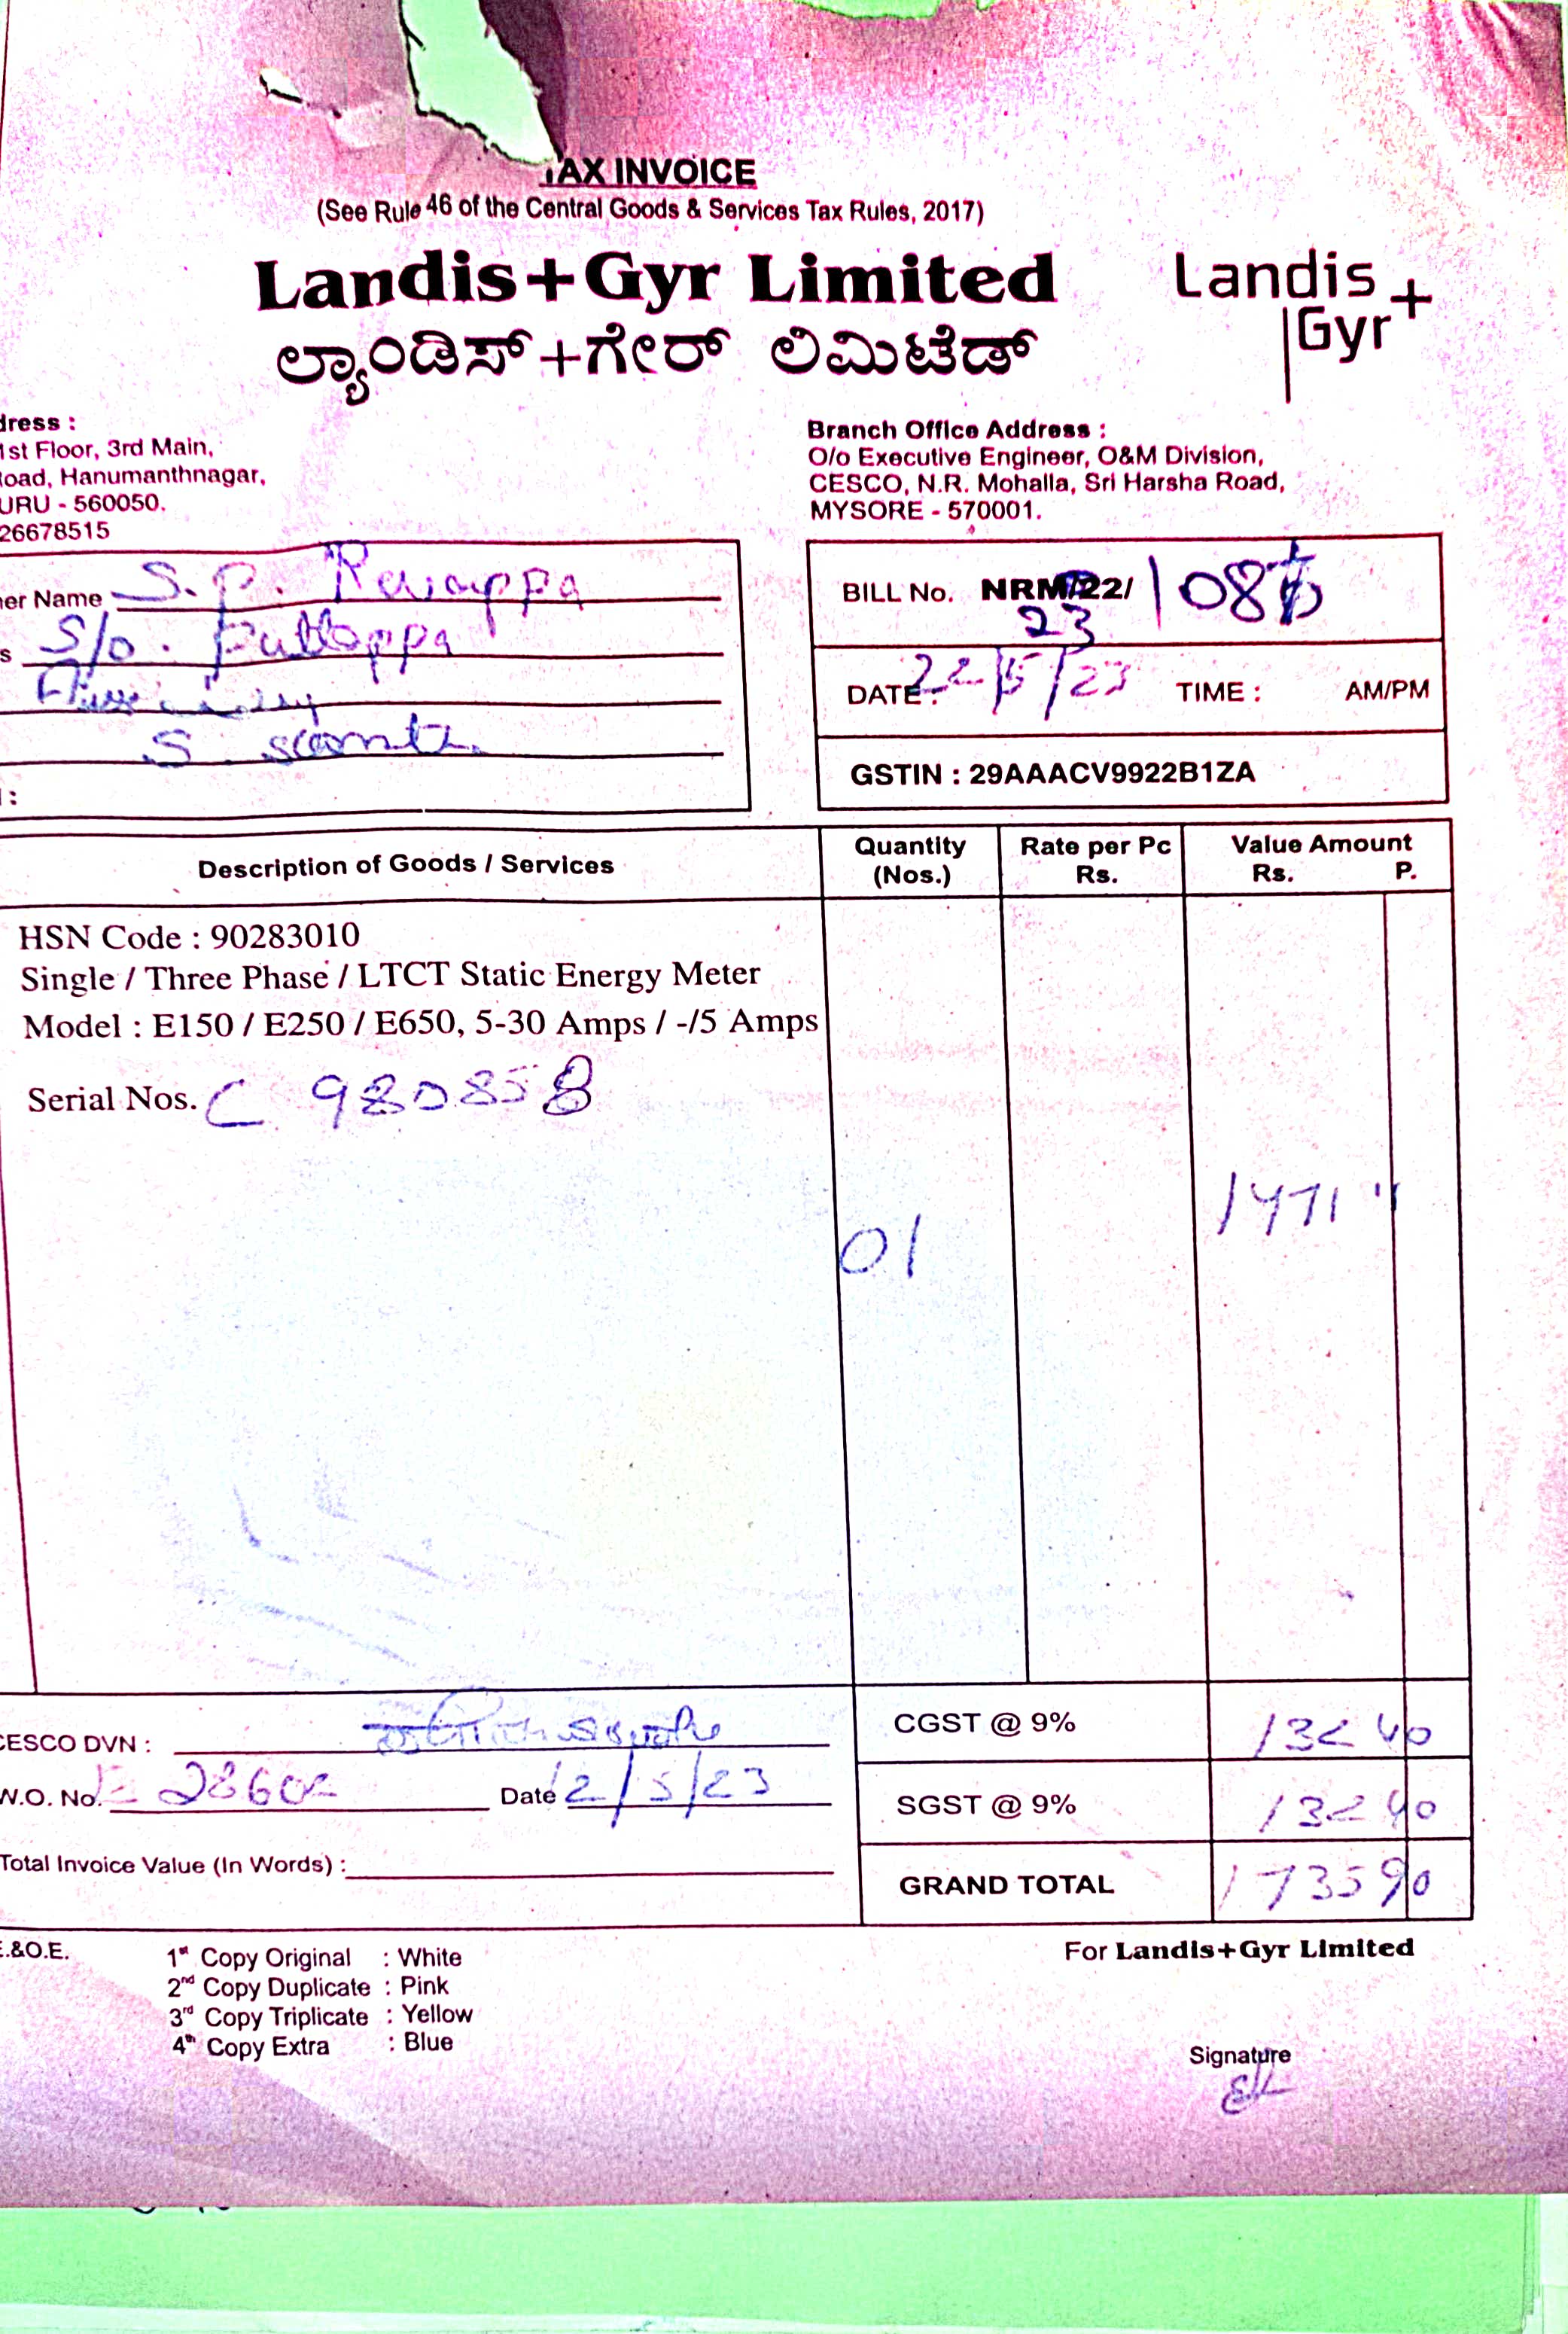 TAX INVOICE
(See Rule 46 of the Central Goods & Services Tax Rules, 2017)
Landis+Gyr Limited
Landis+Gyr
ಲ್ಯಾಂಡಿಸ್+ಗೇರ್ ಲಿಮಿಟೆಡ್
dress :
1st Floor, 3rd Main,
oad, Hanumanthnagar,
URU - 560050.
26678515
Branch Office Address :
O/o Executive Engineer, O&M Division,
CESCO, N.R. Mohalla, Sri Harsha Road,
MYSORE - 570001.
er Name S. P.
s S/o. Puttappa
S.
:
BILL No. NRM/22/
23
DATE: 22/5/23 TIME : AM/PM
GSTIN : 29AAACV9922B1ZA
Description of Goods / Services
Quantity (Nos.)
Rate per Pc Rs.
Value Amount Rs. P.
HSN Code : 90283010
Single / Three Phase / LTCT Static Energy Meter
Model : E150 / E250 / E650, 5-30 Amps / -/5 Amps
Serial Nos. C 980858
01
1471
CESCO DVN :
W.O. No. 28602 Date 12/5/23
Total Invoice Value (In Words) :
CGST @ 9% 132 40
SGST @ 9% 132 40
GRAND TOTAL 1735 90
E.&O.E.
1st Copy Original : White
2nd Copy Duplicate : Pink
3rd Copy Triplicate : Yellow
4th Copy Extra : Blue
For Landis+Gyr Limited
Signature